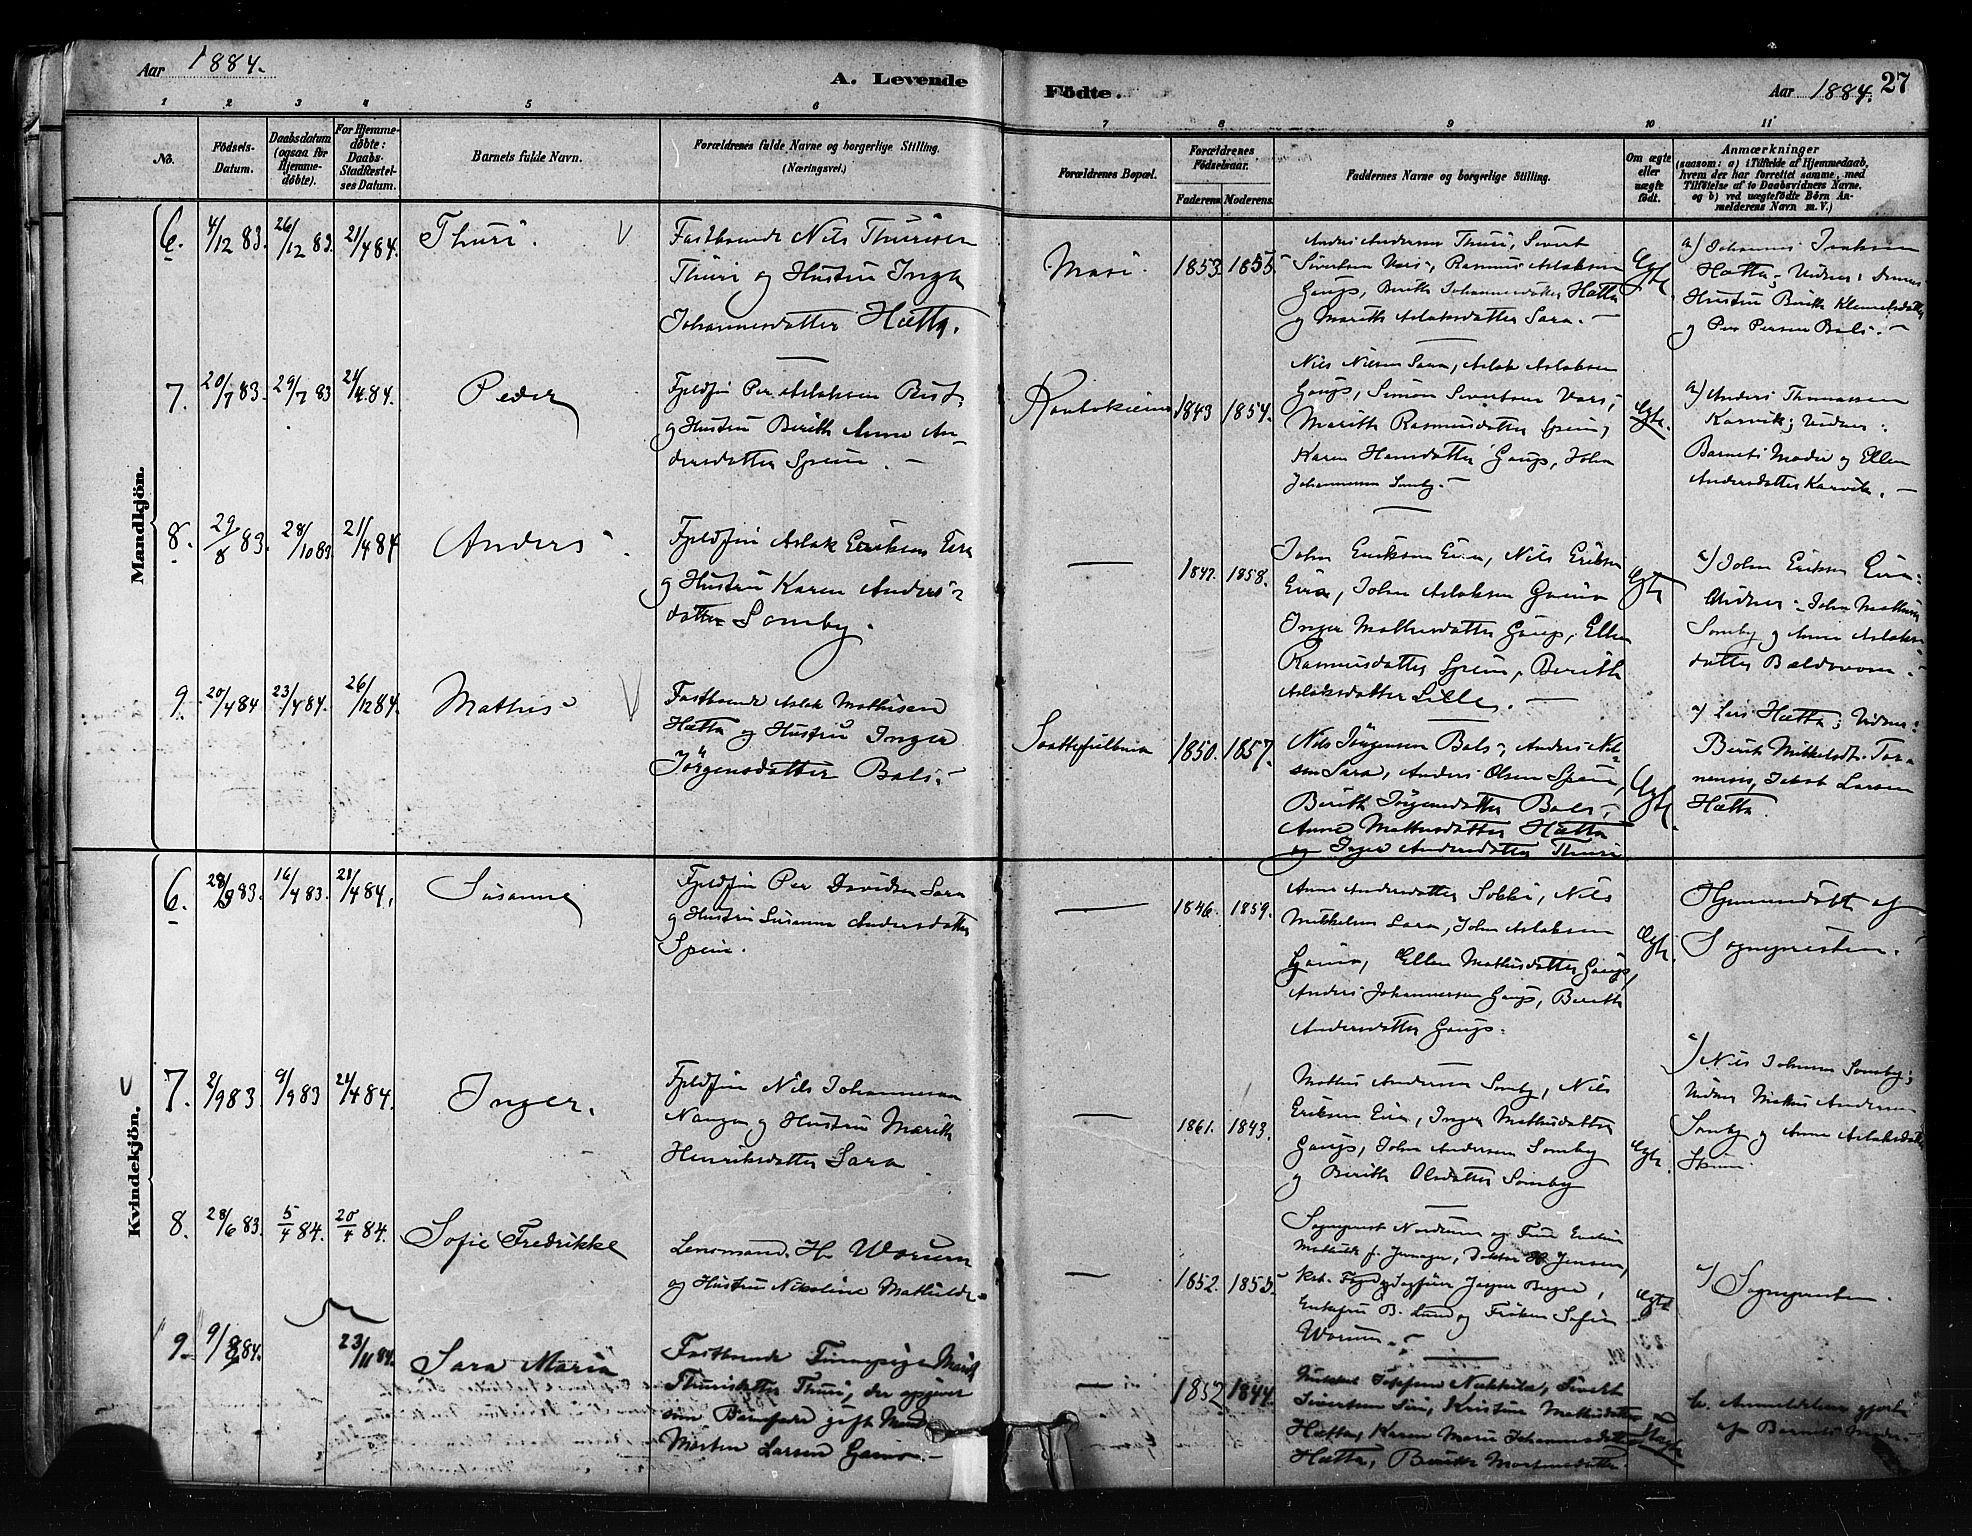 Aar 1884.
A. Levende
Födte.
Aar 1884. 27
1 2 3 4 5 6 7 8 9 10 11
No.
Födsels-Datum.
Daabsdatum (ogsaa for Hjemmedöbte).
For Hjemmedöbte: Daabs-Stadfæstelses Datum.
Barnets fulde Navn.
Forældrenes fulde Navne og borgerlige Stilling.
(Næringsvei.)
Forældrenes Bopæl.
Forældrenes Födselsaar.
Faderens. Moderens.
Faddernes Navne og borgerlige Stilling.
Om ægte eller uægte födt.
Anmærkninger
(saasom: a) i Tilfælde af Hjemmedaab, hvem der har forrettet samme, med Tilföielse af to Daabsvidners Navne. og b) ved uægtefödte Börn Anmelderens Navn m. V.)
Mandkjön.
6. 4/12 83. 26/12 83. 21/4 84. Thuri.
Fastboende Nils Thurisen
Thuri og Hustru Inga
Johannesdatter Hætta.
Masi. 1853. 1855
Anders Andersen Thuri, Sivert
Sivertsen Vars, Rasmus Aslaksen
Gaup, Berith Johannesdatter Hætta
og Marith Aslaksdatter Sara.
Ægte
a) Johannes Isaksen
Hætta; Vidner: Dennes
Hustru Berith Klemetsdatter
og Per Persen Bals.
7. 20/7 83. 29/7 83 21/4 84. Peder
Fjeldfin Per Aslaksen
og Hustru Berith Anne An-
dersdatter Spein.
Kautokeino 1843 1854.
Nils Nilsen Sara, Aslak Aslaksen
Gaup, Simon Sivertsen Vars,
Marith Rasmusdatter Spein,
Karen Hansdatter Gaup, John
Johannesen Somby.
Ægte.
a) Anders Thomassen
Karvik; Vidner:
Barnets Moder og Ellen
Andersdatter Karvik.
8. 29/8 83. 28/10 83. 21/4 84 Anders
Fjeldfin Aslak Eriksen Eira
og Hustru Karen Anders-
datter Somby.
1847. 1858.
John Eriksen Eira, Nils Eriksen
Eira, John Aslaksen Gaino
Inger Mathisdatter Gaup, Ellen
Rasmusdatter Spein, Berith
Aslaksdatter Lille.
Ægte
a) John Eriksen Eira
Vidner: John Mathisen
Somby og Anne Aslaks-
datter
9. 20/4 84 23/4 84. 26/12 84. Mathis
Fastboende Aslak Mathisen
Hætta og Hustru Inger
Jörgensdatter Bals.
1850. 1857.
Nils Jörgensen Bals, Anders Nil-
sen Sara, Anders Olsen Spein,
Berith Jörgensdatter Bals,
Anne Mathisdatter Hætta
og Inger Andersdatter Thuri
Ægte.
a) Lars Hætta; Vidner:
Berit Mikkelsdt. Tor-
nensis, Jakob Larsen
Hætta.
Kvindekjön.
6. 28/3 83. 16/4 83. 21/4 84. Susanne
Fjeldfin Per Davidsen Sara
og Hustru Susanna Andersdatter
Spein.
1846. 1859.
Anne Andersdatter Sokki, Nils
Mikkelsen Sara, John Aslaksen
Gaino, Ellen Mathisdatter Gaup,
Anders Johannesen Gaup, Berith
Andersdatter Gaup.
Ægte.
Hjemmedöbt af
Sognepresten.
7. 2/9 83. 9/9 83 21/4 84. Inger.
Fjeldfin Nils Johannesen
Nango og Hustru Marith
Henriksdatter Sara
1861. 1843.
Mathis Andersen Somby, Nils
Eriksen Eira, Inger Mathisdatter
Gaup, John Andersen Somby
og Berith Olsdatter Somby
Ægte.
a) Nils Johnsen Somby;
Vidner Mathis Andersen
Somby og Anne Aslaksdatter
8. 28/6 83. 5/4 84. 20/4 84. Sofie Fredrikke
Lensmand H. Worum
og Hustru Nikoline Mathilde
1852. 1855
Sogneprest Nordrum og Frue
Mathilde f. Doktor H. Jensen,
B. Lund og Fröken Sofie
Worum.
Ægte
a) Sognepresten.
9. 9/8 84. 23/11 84. Sara Maria
Fastboende Marit
Thurisdatter Thuri, der opgiver
som Barnefader gift Mand
Morten Larsen Gaino.
1852 1844.
Mikkel Nikkila, Sivert
Sivertsen Siri, Kristine Mathisdatter
Hætta, Karen Marie Johannesdatter
Hætta, Mortensdatter.
Uægte
b. Anmeldelsen gjort
af Barnets Moder